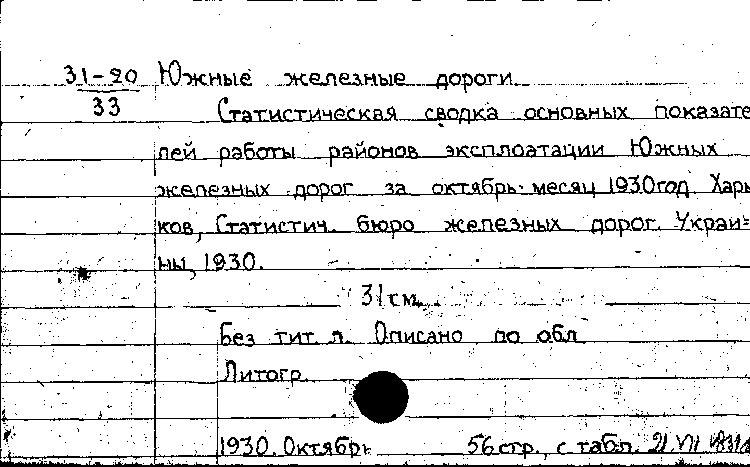 31-20 Южные железные дороги.
33
Статистическая сводка основных показате
лей работы районов эксплоатации Южных
железных дорог за октябрь месяц 1930 год. Харь
ков, Статистич. бюро железных дорог Украи-
ны, 1930.
31 см.
Без тит. л. Описано по обл.
Литогр.
1930. Октябрь 56 стр., с табл. 21 VII